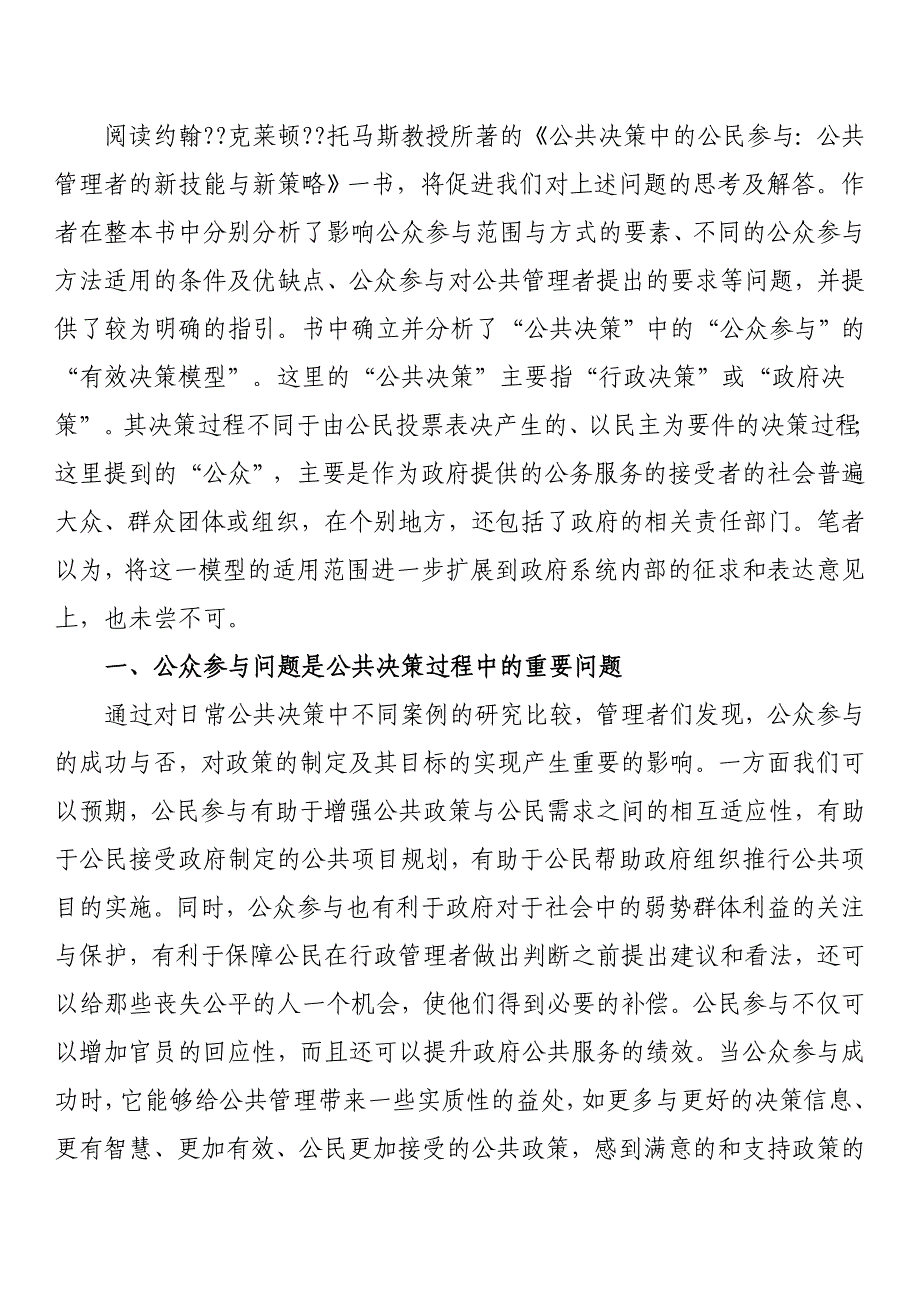 阅读约翰??克莱顿??托马斯教授所著的《公共决策中的公民参与：公共
管理者的新技能与新策略》一书，将促进我们对上述问题的思考及解答。作
者在整本书中分别分析了影响公众参与范围与方式的要素、不同的公众参与
方法适用的条件及优缺点、公众参与对公共管理者提出的要求等问题，并提
供了较为明确的指引。书中确立并分析了“公共决策”中的“公众参与”的
“有效决策模型”。这里的“公共决策”主要指“行政决策”或“政府决
策”。其决策过程不同于由公民投票表决产生的、以民主为要件的决策过程；
这里提到的“公众”，主要是作为政府提供的公务服务的接受者的社会普遍
大众、群众团体或组织，在个别地方，还包括了政府的相关责任部门。笔者
以为，将这一模型的适用范围进一步扩展到政府系统内部的征求和表达意见
上，也未尝不可。
一、公众参与问题是公共决策过程中的重要问题
通过对日常公共决策中不同案例的研究比较，管理者们发现，公众参与
的成功与否，对政策的制定及其目标的实现产生重要的影响。一方面我们可
以预期，公民参与有助于增强公共政策与公民需求之间的相互适应性，有助
于公民接受政府制定的公共项目规划，有助于公民帮助政府组织推行公共项
目的实施。同时，公众参与也有利于政府对于社会中的弱势群体利益的关注
与保护，有利于保障公民在行政管理者做出判断之前提出建议和看法，还可
以给那些丧失公平的人一个机会，使他们得到必要的补偿。公民参与不仅可
以增加官员的回应性，而且还可以提升政府公共服务的绩效。当公众参与成
功时，它能够给公共管理带来一些实质性的益处，如更多与更好的决策信息、
更有智慧、更加有效、公民更加接受的公共政策，感到满意的和支持政策的